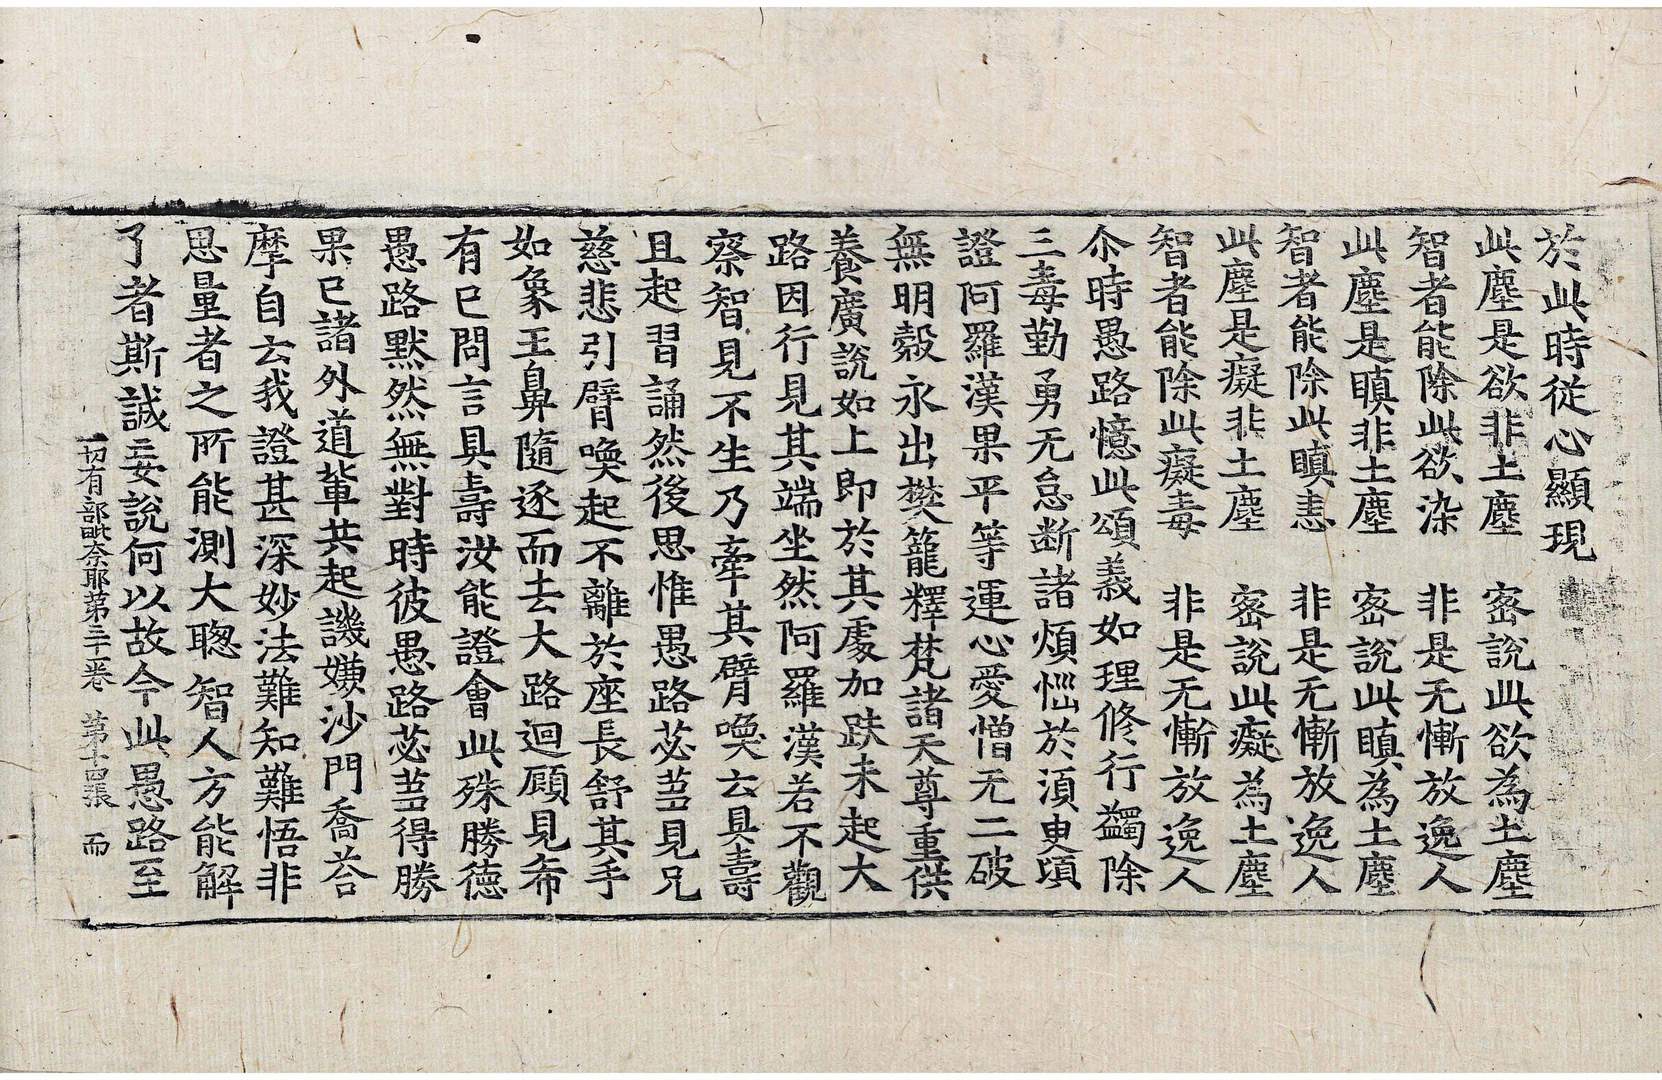 於此時從心顯現
此塵是欲非土塵　密說此欲為土塵
智者能除此欲染　非是无慚放逸人
此塵是瞋非土塵　密說此瞋為土塵
智者能除此瞋恚　非是无慚放逸人
此塵是癡非土塵　密說此癡為土塵
智者能除此癡毒　非是无慚放逸人
尒時愚路憶此頌義如理修行蠲除
三毒勤勇无怠断諸煩惱於湏臾頃
證阿羅漢果平等運心愛憎无二破
無明㲉永出樊籠釋梵諸天尊重供
養廣說如上即於其處加趺未起大
路因行見其端坐然阿羅漢若不觀
察智見不生乃牽其臂喚云具壽
且起習誦然後思惟愚路苾芻見兄
慈悲引臂喚起不離於座長舒其手
如象王鼻隨逐而去大路迴顧見希
有已問言具壽汝能證會此殊勝徳
愚路默然無對時彼愚路苾芻得勝
果已諸外道軰共起譏嫌沙門喬荅
摩自云我證甚深妙法難知難悟非
思量者之所能測大聦智人方能解
了者斯誠妄說何以故今此愚路至
一切有部毗奈耶第三十一卷　第十四張　而